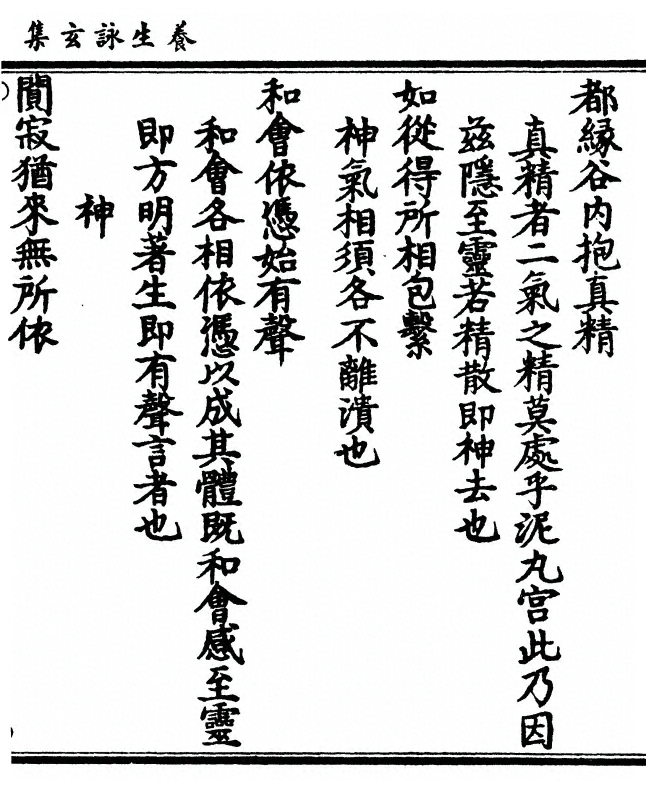 養生詠玄集
都緣谷内抱真精
真精者二氣之精莫處乎泥丸宫此乃因
兹隱至靈若精散即神去也
如從得所相包繫
神氣相須各不離潰也
和會依憑始有聲
和會各相依憑以成其體既和會感至靈
即方明著生即有聲言者也
神
閴寂猶來無所依